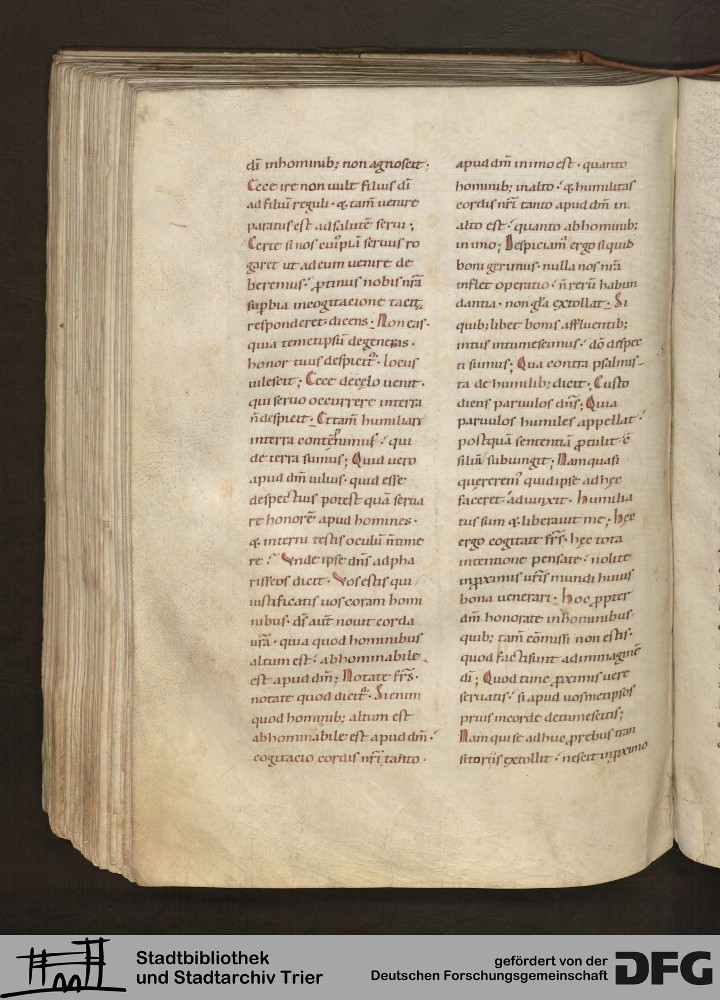 di̅ inhominib; non agnoscit;
Ecce ire non uult filius di̅
ad filiu̅ reguli· & tam̅ uenire
paratus est ad salute̅ serui;
Certe si nos cui᷒pia̅ seruus ro
garet ut ad eum uenire de
beremus· ꝓtinus nobis nr̅a
sup̱bia incogitacione tacita
responderet dicens· Non eas·
quia temetipsu̅ degeneras·
honor tuus despicit᷒· locus
uilescit; Ecce decęlo uenit·
qui seruo occurrere interra
n̅ despicit· Et tam̅ humiliari
interra conte̅pnimus· qui
de terra sumus; Quid uero
apud dm̅ uilius· quid esse
despectius potest qua̅ serua
re honore̅ apud homines·
& interni testis oculu̅ n̅ time
re? Vnde ipse dn̅s ad pha
risęos dicit· Vos estis qui
iustificatis uos coram homi
nibus· ds̅ aut̅ nouit corda
ur̅a· quia quod hominibus
altum est· abhominabile
est apud dm̅; Notate fr̅s·
notate quod dicit᷒· Si enim
quod hominib; altum est
abhominabile est apud dm̅·
cogitacio cordis nr̅i tanto·
apud dm̅ in imo est· quanto
hominib; in alto· & humilitas
cordis nr̅i tanto apud dm̅ in
alto est· quanto ab hominib;
in imo; Despiciam᷒ ergo si quid
boni gerimus· nulla nos nr̅a
inflet operatio· n̅ reru̅ habun
dantia· non gl̅a extollat· Si
quib;libet bonis affluentib;
intus intumescimus· do̅ despec
ti sumus; Qua contra psalmis-
ta de humilib; dicit· Custo
diens paruulos dn̅s; Quia
paruulos humiles appellat·
postqua̅ sententia̅ ꝓtulit· c̅
siliu̅ subiungit; Nam quasi
quęrerem᷒ quid ipse ad hęc
faceret· adiunxit· Humilia
tus sum & liberauit me; Hęc
ergo cogitate fr̅s· hęc tota
intentione pensate· nolite
in ꝓximis ur̅is mundi huius
bona uenerari· Hoc ꝓpter
dm̅ honorate in hominibus·
quib; tam̅ co̅missi non estis·
quod facti sunt ad immagine̅
di̅; Quod tunc ꝓximis uere
seruatis· si apud uosmetipsos
prius in corde detumescitis;
Nam qui se adhuc ꝓ rebus tran
sitoriis extollit· nescit in ꝓximo
Stadtbibliothek
und Stadtarchiv Trier
gefördert von der
Deutschen Forschungsgemeinschaft
DFG